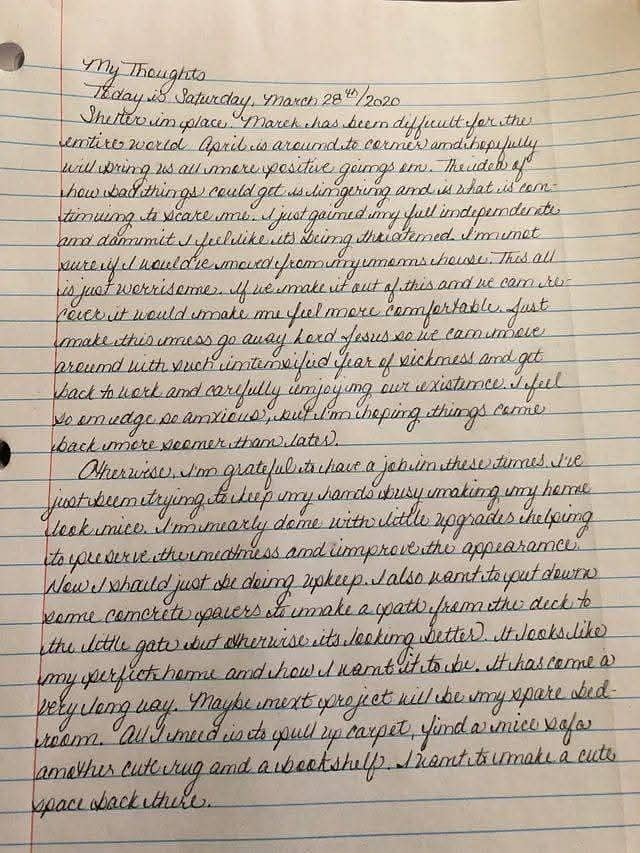 My Thoughts
Today is Saturday, March 28th/2020
Shelter in place. March has been difficult for the
entire world April is around to corner and hopefully
will bring us all more positive goings on. The idea of
how bad things could get is lingering and is what is con-
tinuing to scare me. I just gained my full independente
and dammit I feel like its being thriatened. I'm not
sure if I would've moved from my moms house. This all
is just worrisome. If we make it out of this and we can re-
cover it would make me feel more comfortable. Just
make this mess go away Lord Jesus so we can move
around with such intensified fear of sickness and get
back to work and carefully injoying our existence. I feel
so on edge so anxious, but I'm hoping things come
back more sooner than later.
Otherwise, I'm grateful to have a job in these times. I've
just been trying to keep my hands busy making my home
look nice. I'm nearly done with little upgrades helping
to preserve the neatness and improve the appearance.
Now I should just be doing upkeep. I also want to put down
some concrete pavers to make a path from the deck to
the little gate but otherwise its looking better. It looks like
my perfict home and how I want it to be. It has come a
very long way. Maybe next project will be my spare bed-
room. All I need is to pull up carpet, find a nice sofa
another cute rug and a bookshelf. I want to make a cute
space back there.